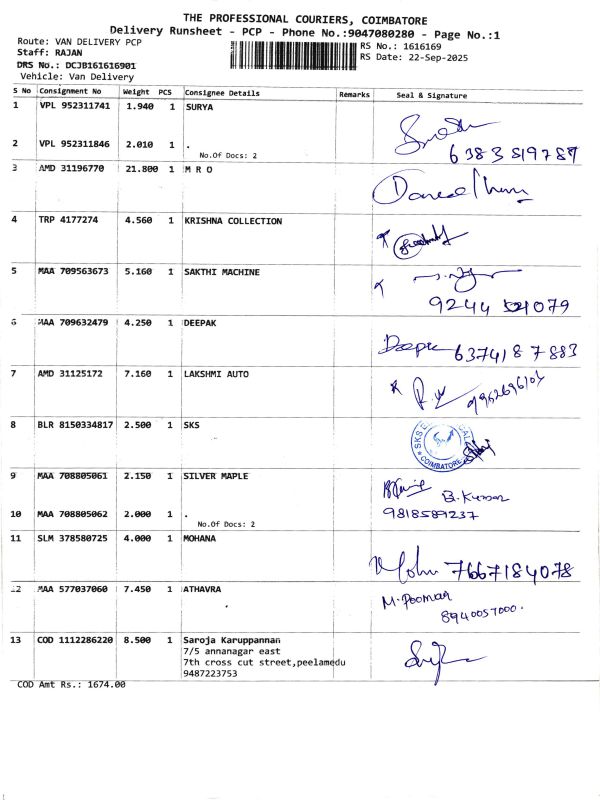 THE PROFESSIONAL COURIERS, COIMBATORE
Delivery Runsheet - PCP - Phone No.:9047080280 - Page No.:1
Route: VAN DELIVERY PCP
Staff: RAJAN
DRS No.: DCJB161616901
Vehicle: Van Delivery
RS No.: 1616169
RS Date: 22-Sep-2025
S No Consignment No Weight PCS Consignee Details Remarks Seal & Signature
1 VPL 952311741 1.940 1 SURYA
2 VPL 952311846 2.010 1 .
No.Of Docs: 2
6383519787
3 AMD 31196770 21.800 1 M R O
4 TRP 4177274 4.560 1 KRISHNA COLLECTION
5 MAA 709563673 5.160 1 SAKTHI MACHINE
9244 079
6 MAA 709632479 4.250 1 DEEPAK
Deepu 6374187883
7 AMD 31125172 7.160 1 LAKSHMI AUTO
8 BLR 8150334817 2.500 1 SKS
SKS
COIMBATORE
9 MAA 708805061 2.150 1 SILVER MAPLE
B.Kumar
10 MAA 708805062 2.000 1 .
No.Of Docs: 2
9818589237
11 SLM 378580725 4.000 1 MOHANA
7667184078
12 MAA 577037060 7.450 1 ATHAVRA
M.Poomari
8940057000.
13 COD 1112286220 8.500 1 Saroja Karuppannan
7/5 annanagar east
7th cross cut street,peelamedu
9487223753
COD Amt Rs.: 1674.00